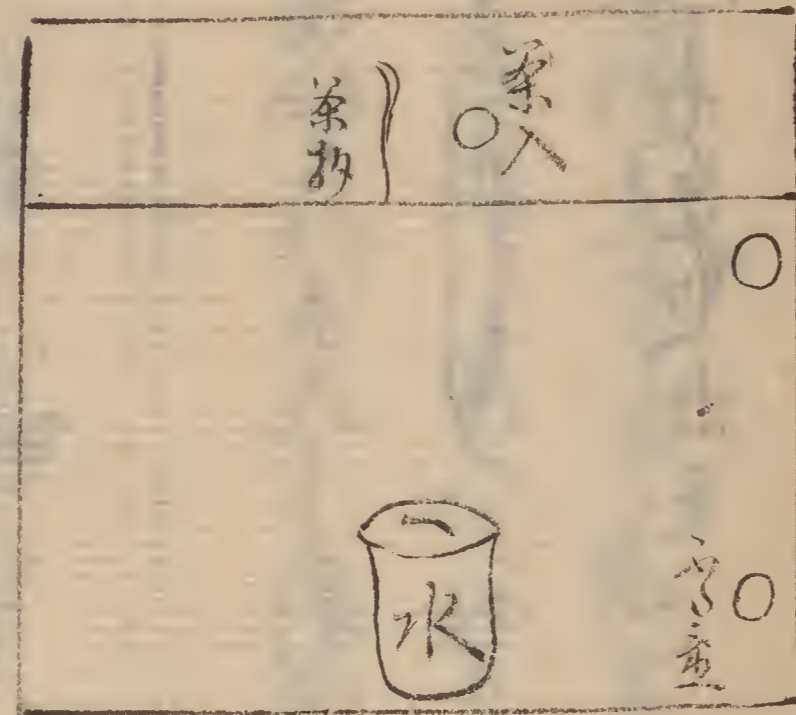 茶入
茶杓
水